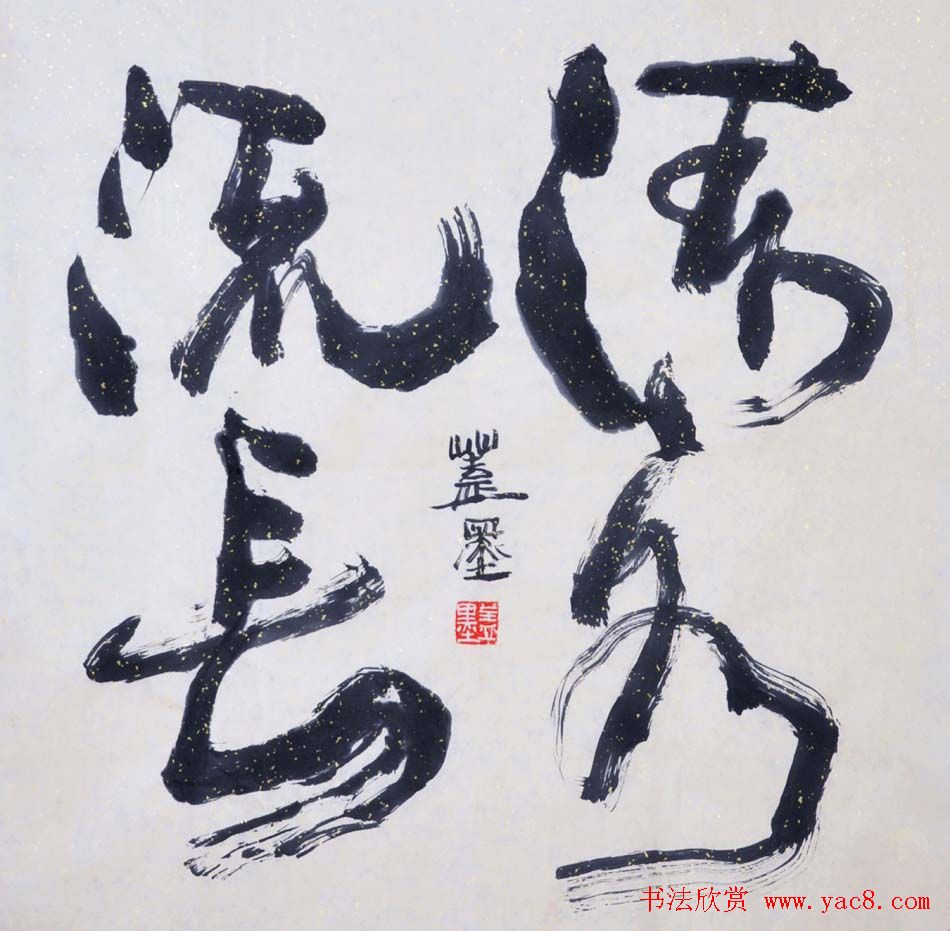 源远
流长
墨
书法欣赏 www.yac8.com